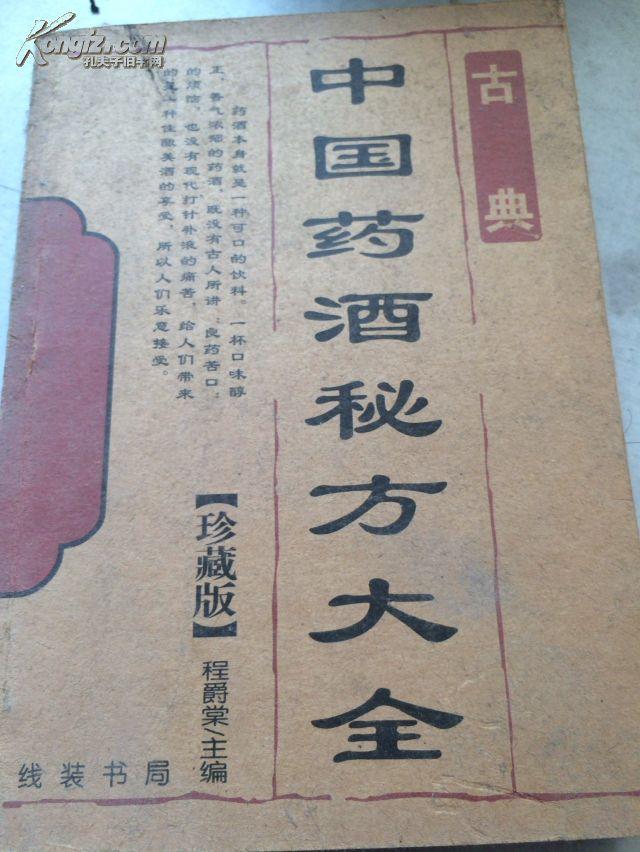 Kongfz.com
孔夫子旧书网
古典
中国药酒秘方大全
药酒本身就是一种可口的饮料。一杯口味醇
正，香气浓郁的药酒，既没有古人所讲：良药苦口；
的烦恼，也没有现代打针补液的痛苦，给人们带来
的是一种佳酿美酒的享受，所以人们乐意接受。
【珍藏版】
程爵棠/主编
线装书局